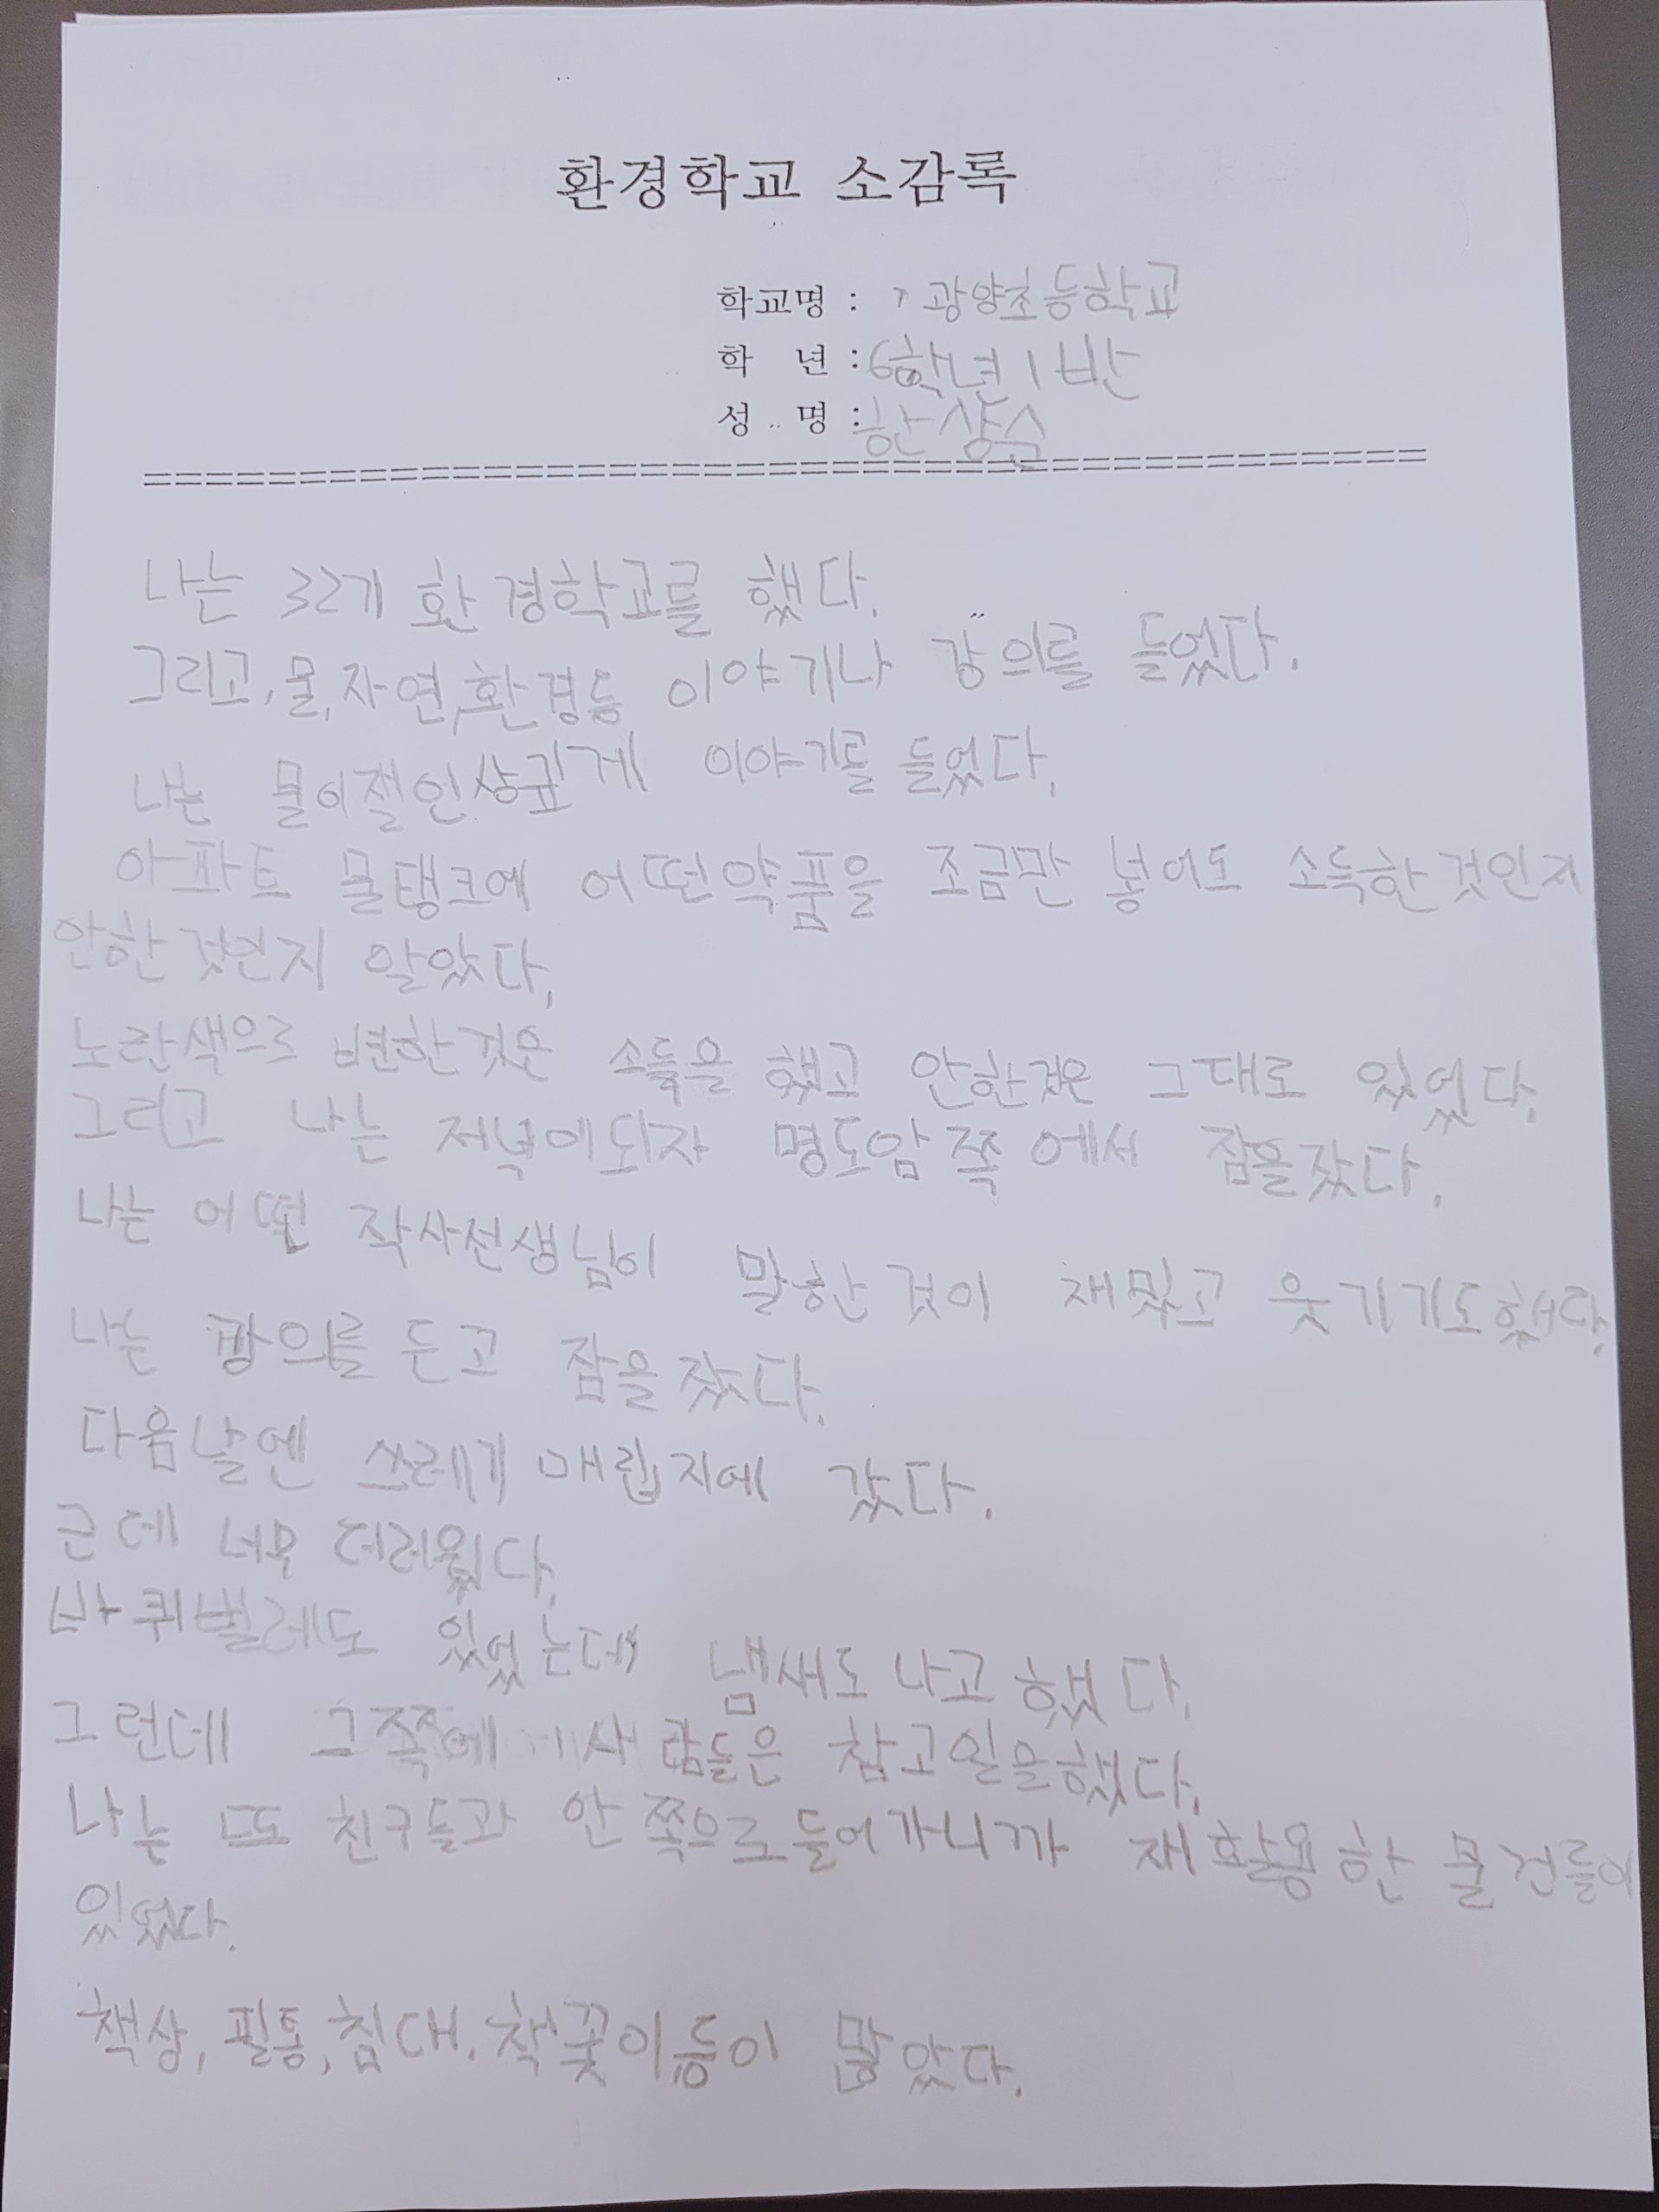 환경학교 소감록
학교명 : 광양초등학교
학 년 : 6학년 1반
성 명 : 한상순
나는 32기 환경학교를 했다.
그리고, 물, 자연, 환경등 이야기나 강의를 들었다.
나는 물이 인상깊게 이야기를 들었다.
아파트 물탱크에 어떤약품을 조금만 넣어도 소득한것인지
안한것인지 알았다.
노란색으로 변한것은 소득을 했고 안한것은 그대로 있었다.
그리고 나는 저녁이되자 명도암쪽에서 잠을잤다.
나는 어떤 작사선생님이 말한것이 재밌고 웃기기도했다.
나는 강의를 듣고 잠을잤다.
다음날엔 쓰레기 매립지에 갔다.
근데 너무 더러웠다.
바퀴벌레도 있었는데 냄새도 나고 했다.
그런데 그쪽에 사람들은 참고일을했다.
나는 또 친구들과 안쪽으로들어가니까 재활용한 물건들이
있었다.
책상, 필통, 침대, 책꽂이등이 많았다.